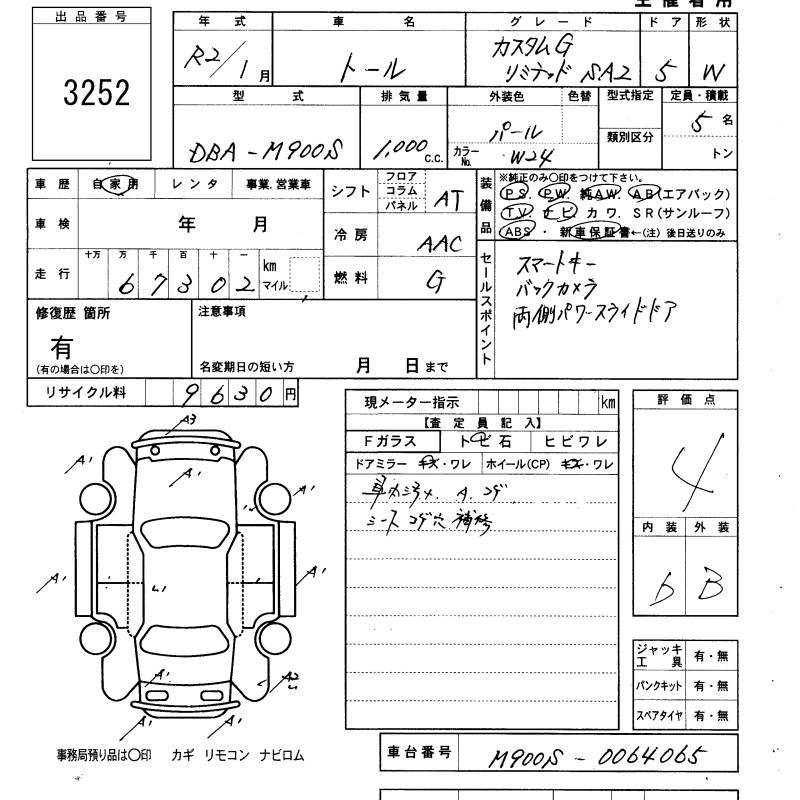 主催者用
出品番号
3252
年式 車名 グレード ドア 形状
R2/1月 トール カスタムG リミテッド SA2 5 W
型式 排気量 外装色 色替 型式指定 定員・積載
DBA-M900S 1,000 c.c. パール カラーNo. W24 類別区分 5名 トン
車歴 自家用 レンタ 事業.営業車
車検 年 月
走行 十万 万 千 百 十 一 km マイル
67302
シフト フロア コラム パネル AT
冷房 AAC
燃料 G
装備品
※純正のみ○印をつけて下さい。
PS. PW. 純AW. AB(エアバック)
TV. ナビ カワ. SR(サンルーフ)
ABS ・ 新車保証書←(注) 後日送りのみ
セールスポイント
スマートキー
バックカメラ
両側パワースライドドア
修復歴 箇所
有
(有の場合は○印を)
注意事項
名変期日の短い方 月 日まで
リサイクル料 9630円
現メーター指示 km
【査定員記入】
Fガラス トビ石 ヒビワレ
ドアミラー キズ・ワレ ホイール(CP) キズ・ワレ
A. コゲ
シート コゲ穴 補修
評価点
4
内装 外装
b B
ジャッキ工具 有・無
パンクキット 有・無
スペアタイヤ 有・無
A3
A1 A1 A1
A1 A1
A1 A2
A1 A1
事務局預り品は○印 カギ リモコン ナビロム
車台番号 M900S-0064065